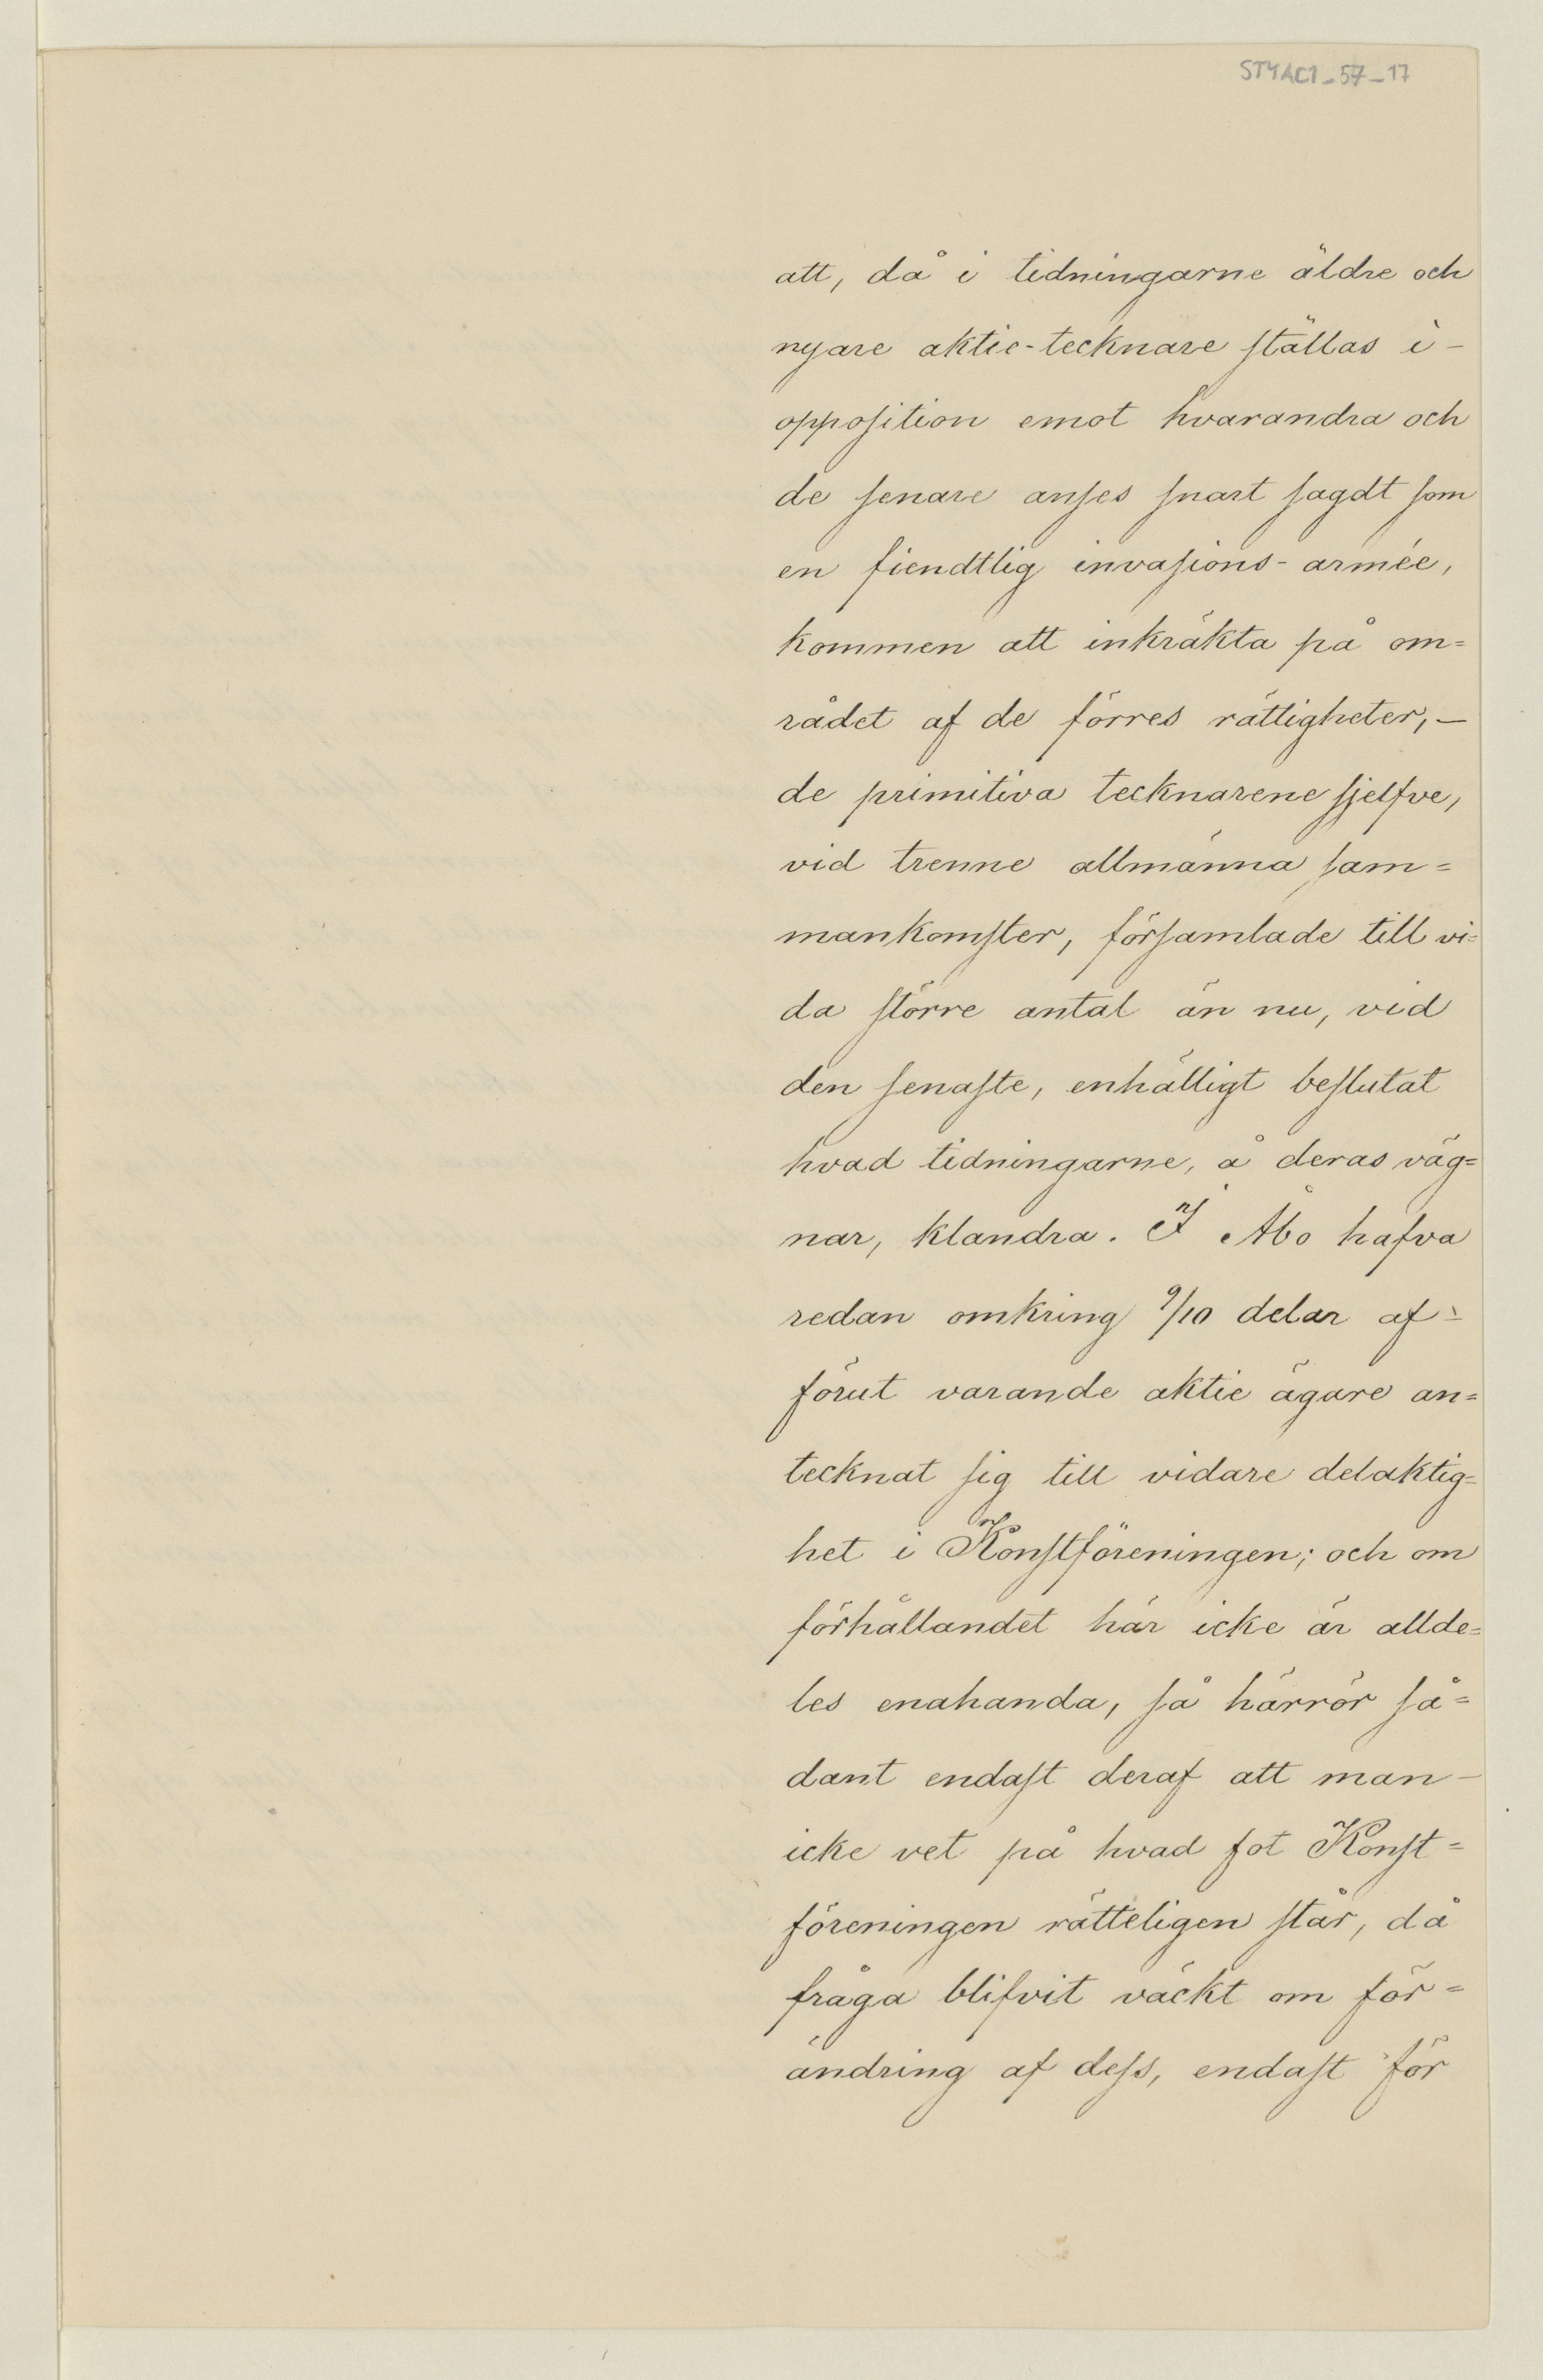 STYAC1_57_17
att, då i tidningarne äldre och
nyare aktie-tecknare ställas i -
opposition emot hvarandra och
de senare anses snart sagdt som
en fiendtlig invasions-armée,
kommen att inkräkta på om=
rådet af de förres rättigheter, —
de primitiva tecknarene sjelfve,
vid trenne allmänna sam=
mankomster, församlade till vi=
da större antal än nu, vid
den senaste, enhälligt beslutat
hvad tidningarne, å deras väg=
nar, klandra. I Åbo hafva
redan omkring 9/10 delar af -
förut varande aktie ägare an=
tecknat sig till vidare delaktig=
het i Konstföreningen; och om
förhållandet här icke är allde=
les enahanda, så härrör så=
dant endast deraf att man -
icke vet på hvad fot Konst=
föreningen rätteligen står, då
fråga blifvit väckt om för=
ändring af dess, endast för